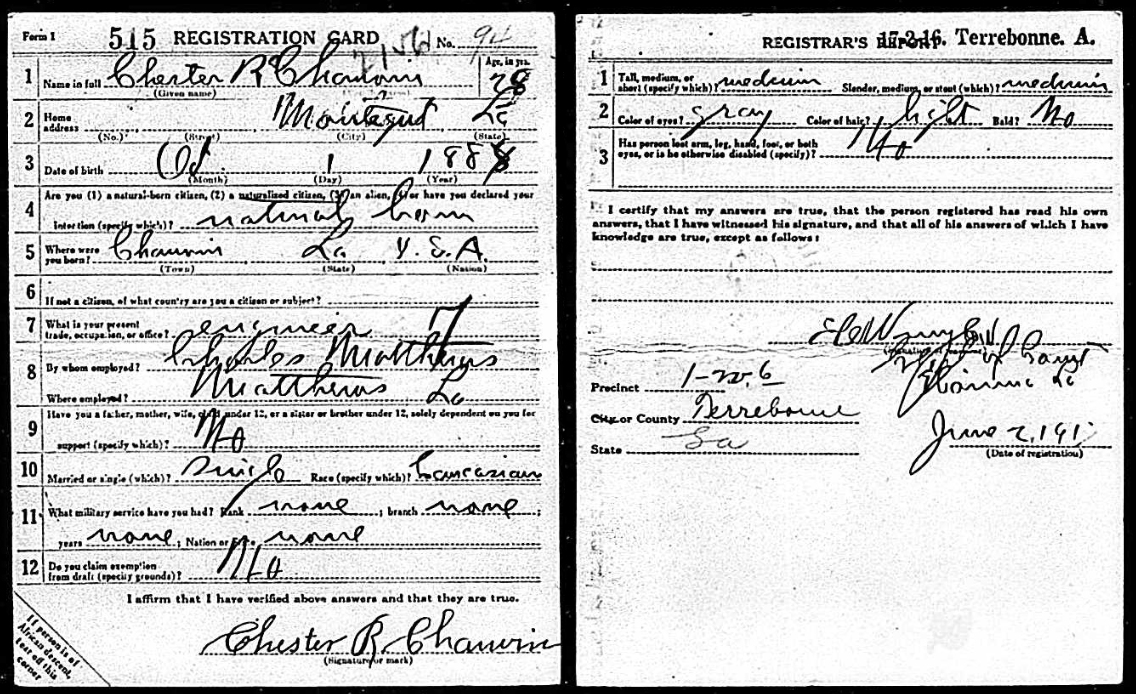 Form 1 515 REGISTRATION CARD No. 94
1 Name in full Chester R Chauvin Age, in yrs. 28
(Given name)
2 Home address Montegut La
(No.) (Street) (City) (State)
3 Date of birth Oct 1 1888
(Month) (Day) (Year)
4 Are you (1) a natural-born citizen, (2) a naturalized citizen, (3) an alien, (4) or have you declared your
intention (specify which)? natural born
5 Where were you born? Chauvin La U.S.A.
(Town) (State) (Nation)
6 If not a citizen, of what country are you a citizen or subject?
7 What is your present trade, occupation, or office? engineer 7
8 By whom employed? Charles Matthews
Where employed? Matthews La
9 Have you a father, mother, wife, child under 12, or a sister or brother under 12, solely dependent on you for
support (specify which)? No
10 Married or single (which)? Single Race (specify which)? Caucasian
11 What military service have you had? Rank none ; branch none ;
years none ; Nation or State none
12 Do you claim exemption from draft (specify grounds)? No
I affirm that I have verified above answers and that they are true.
Chester R Chauvin
(Signature or mark)
If person is of
African descent,
tear off this
corner
REGISTRAR'S REPORT 17-2-16. Terrebonne. A.
1 Tall, medium, or short (specify which)? medium Slender, medium, or stout (which)? medium
2 Color of eyes? gray Color of hair? light Bald? No
3 Has person lost arm, leg, hand, foot, or both eyes, or is he otherwise disabled (specify)? No
I certify that my answers are true, that the person registered has read his own
answers, that I have witnessed his signature, and that all of his answers of which I have
knowledge are true, except as follows:
Precinct 1-W. 6
City or County Terrebonne
State La
June 191
(Date of registration)